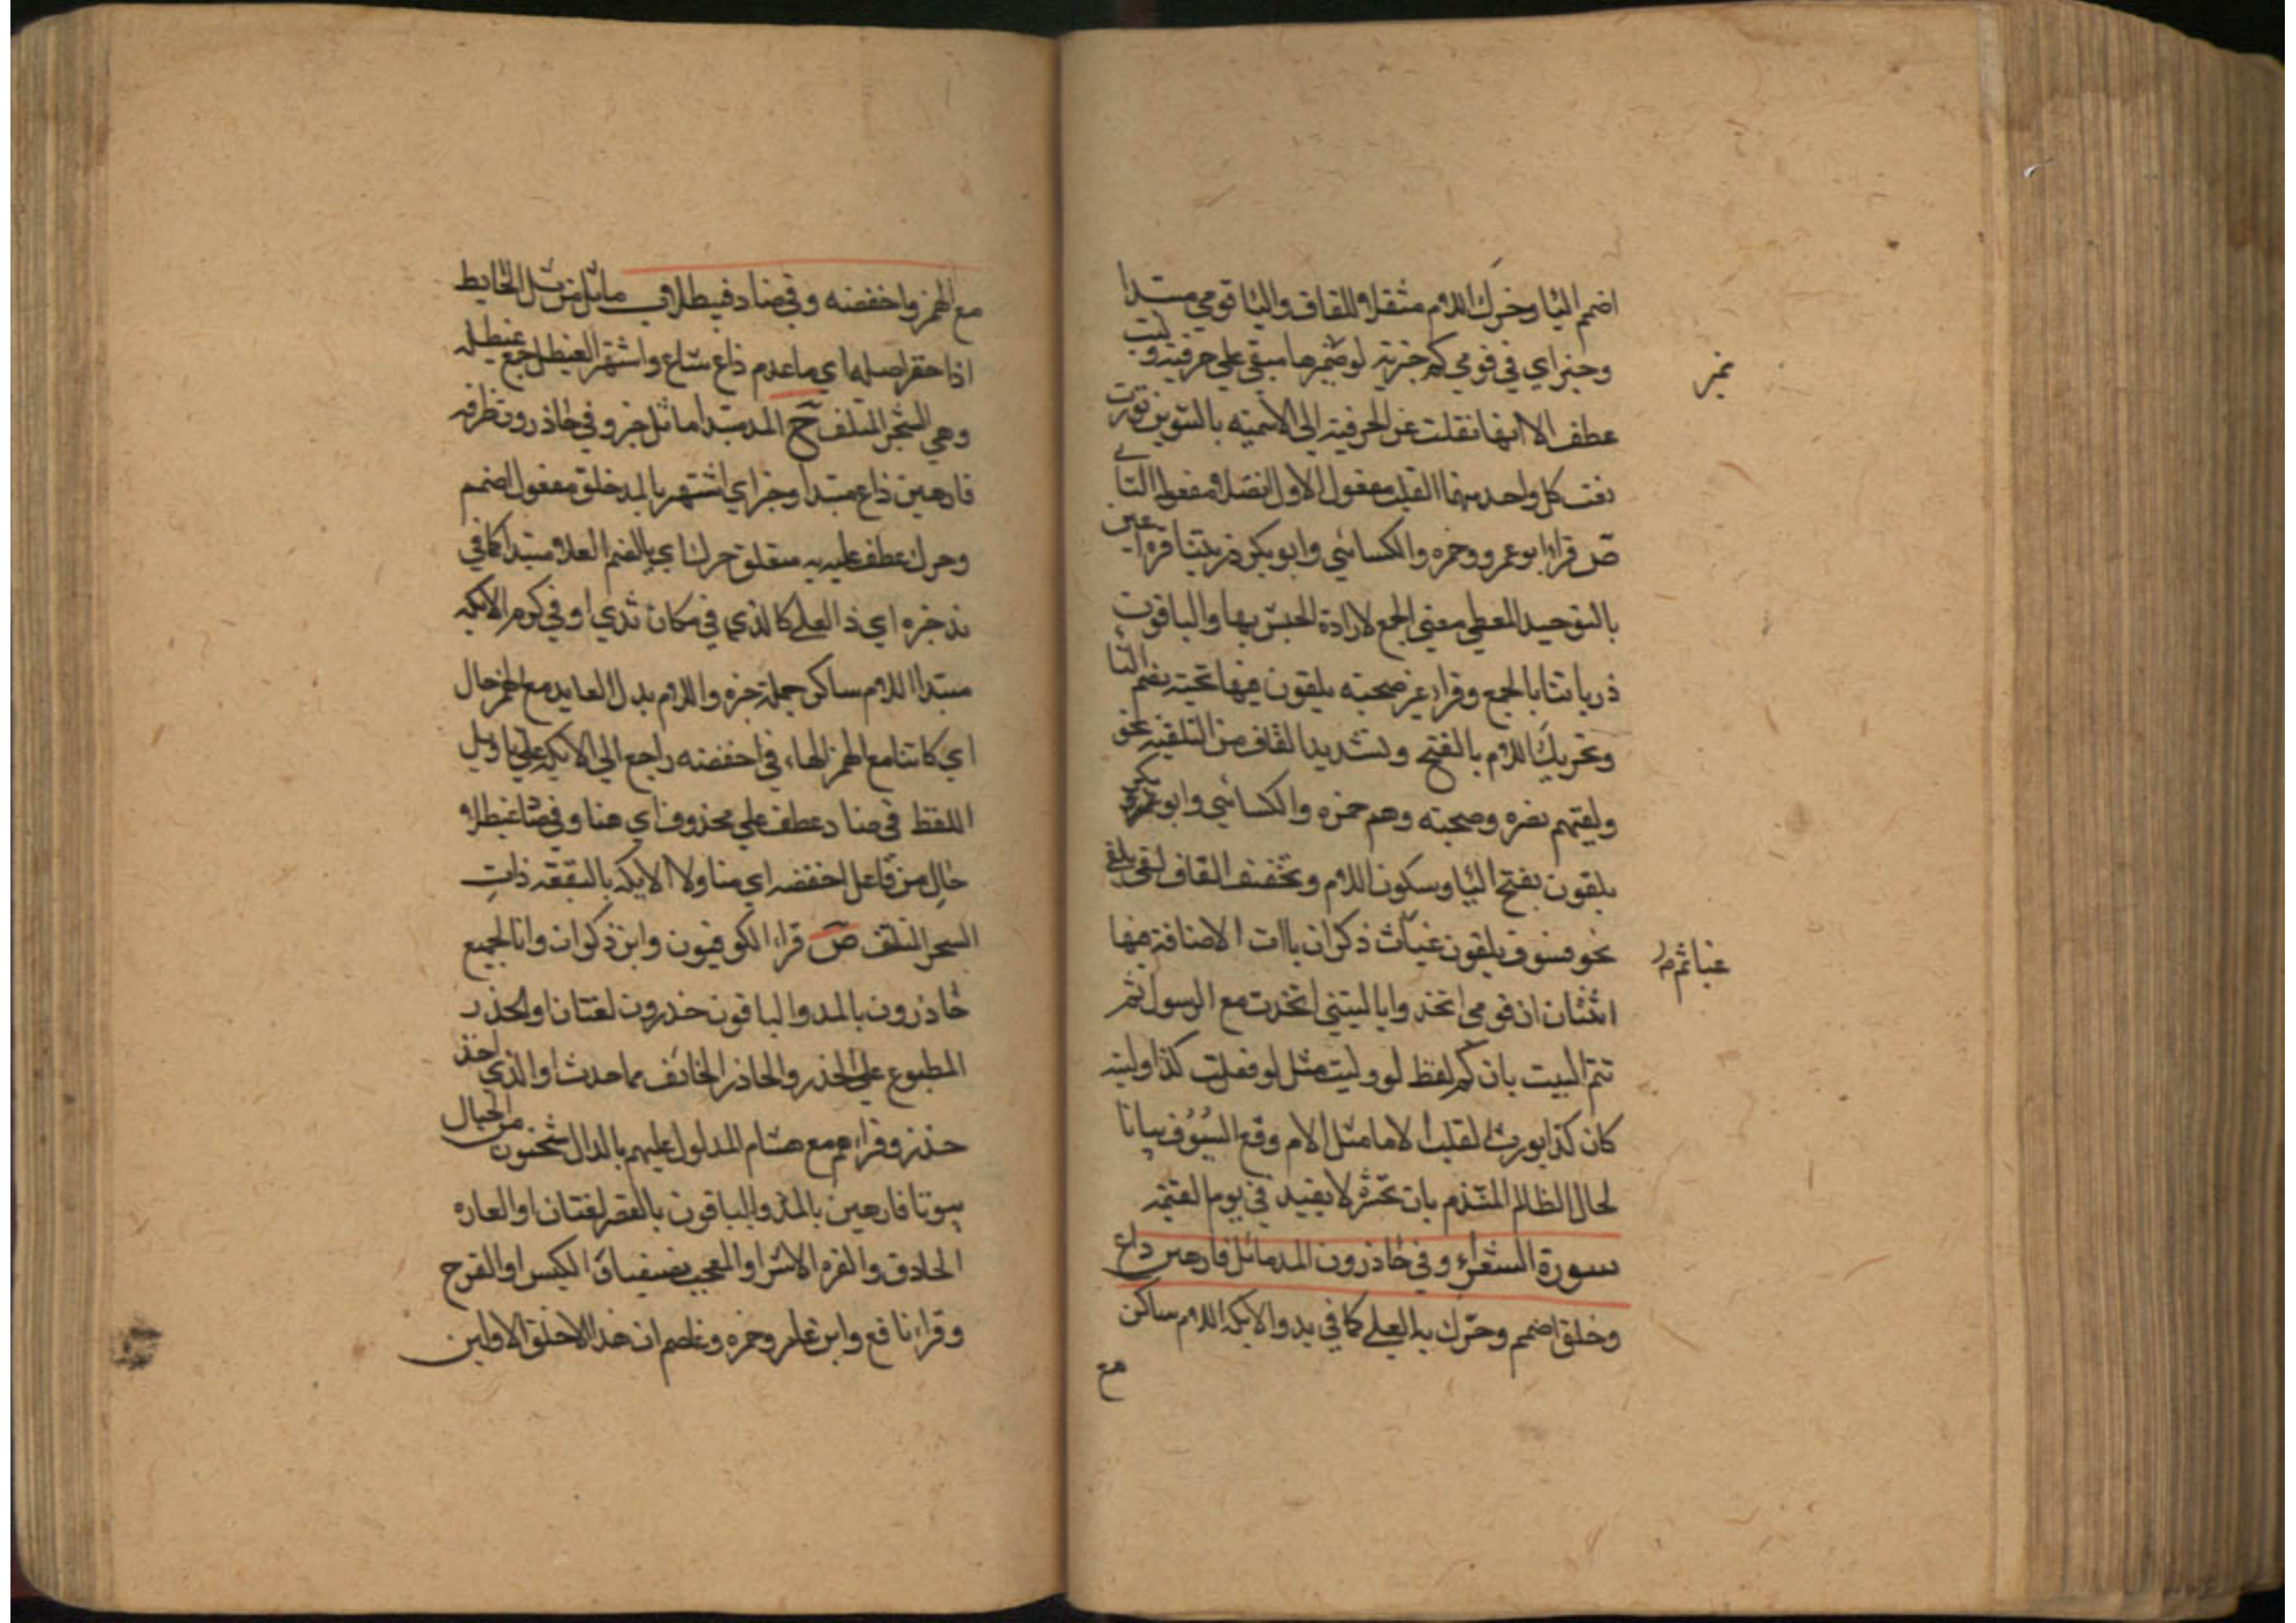 اضمم اليا وحرك اللام مثقلا والقاف واليا قومي مبتدا
وخبر اي في قومي كم خزيه لو ضميرها مبقي علي حرفيته وليت
عطف الا انها نقلت عن الحرفيته الي الاسميه بالتنوين تورت
نعت كل واحد منهما القلب مفعول الاول انصلا مفعوله الثاني
ص قرا ابو عمرو وحمزه والكسائي وابو بكر ذريتنا قرة اعين
بالتوحيد المعطي معني الجمع لارادة الجنس بها والباقون
ذرياتنا بالجمع وقرا غير صحبته يلقون فيها تحيته بضم اليا
وتحريك اللام بالفتح وتشديد القاف من التلقيه نحو
ولقيهم نضره وصحبته وهم حمزه والكسائي وابو بكر
يلقون بفتح اليا وسكون اللام وتخفيف القاف لقي يلقي
نحو فسوف يلقون غيا ثم ذكر ان ياات الاضافة فيها
اثنتان ان قومي اتخذوا يا ليتني اتخذت مع الرسول ثم
تتم البيت بان كم لفظ لو وليت مثل لو فعلت كذا وليته
كان كذا يورث القلب الاما مثل الام وقع السيوف بيانا
لحال الظالم المتندم بان تحسره لا يفيد في يوم القيمه
سورة الشعراء وفي حاذرون المد ما ثل فارهين ذاع
وخلق اضمم وحرك به العلي كما في ند والايكه اللام ساكن
مع
غياثم
مع الهمز واخفضه وفي صاد غيطلا ما ثل من ثل الحايط
اذا حقر اصله اي ما عدم ذاع شاع واشتهر الغيطل جمع غيطله
وهي الشجر الملتف ح المد مبتدا ما ثل خبر وفي حاذرون ظرفه
فارهين ذاع مبتدا وخبر اي اشتهر بالمد خلق مفعول اضمم
وحرك عطف عليه به متعلق حرك اي بالضم العلا مبتدا كما في
ند خبره اي ذ العلي كالذي في مكان ندي او في كرم الايكه
مبتدا اللام ساكن جملة خبره واللام بدل العايد مع الهمز حال
اي كائنا مع الهمز الهاء في اخفضه راجع الي الايكه علي تاويل
اللفظ في صاد عطف علي محذوف اي هنا وفي صاد غيطلا
حال من فاعل اخفضه اي متاولا الايكه بالبقعه ذات
الشجر الملتف ص قراء الكوفيون وابن ذكوان وانا لجميع
حاذرون بالمد والباقون حذرون لغتان او الحذر
المطبوع علي الحذر والحاذر الخائف مما حدث او الذي اخذ
حذره وقراءهم مع هشام المدلول عليهم بالذال تنحتون من الجبال
بيوتا فارهين بالمد والباقون بالقصر لغتان او الفاره
الحاذق والفره الاشر او المعجب بضيفيا الكيس او الفرح
وقراء نافع وابن عامر وحمزه وعاصم ان هذا الا خلق الاولين